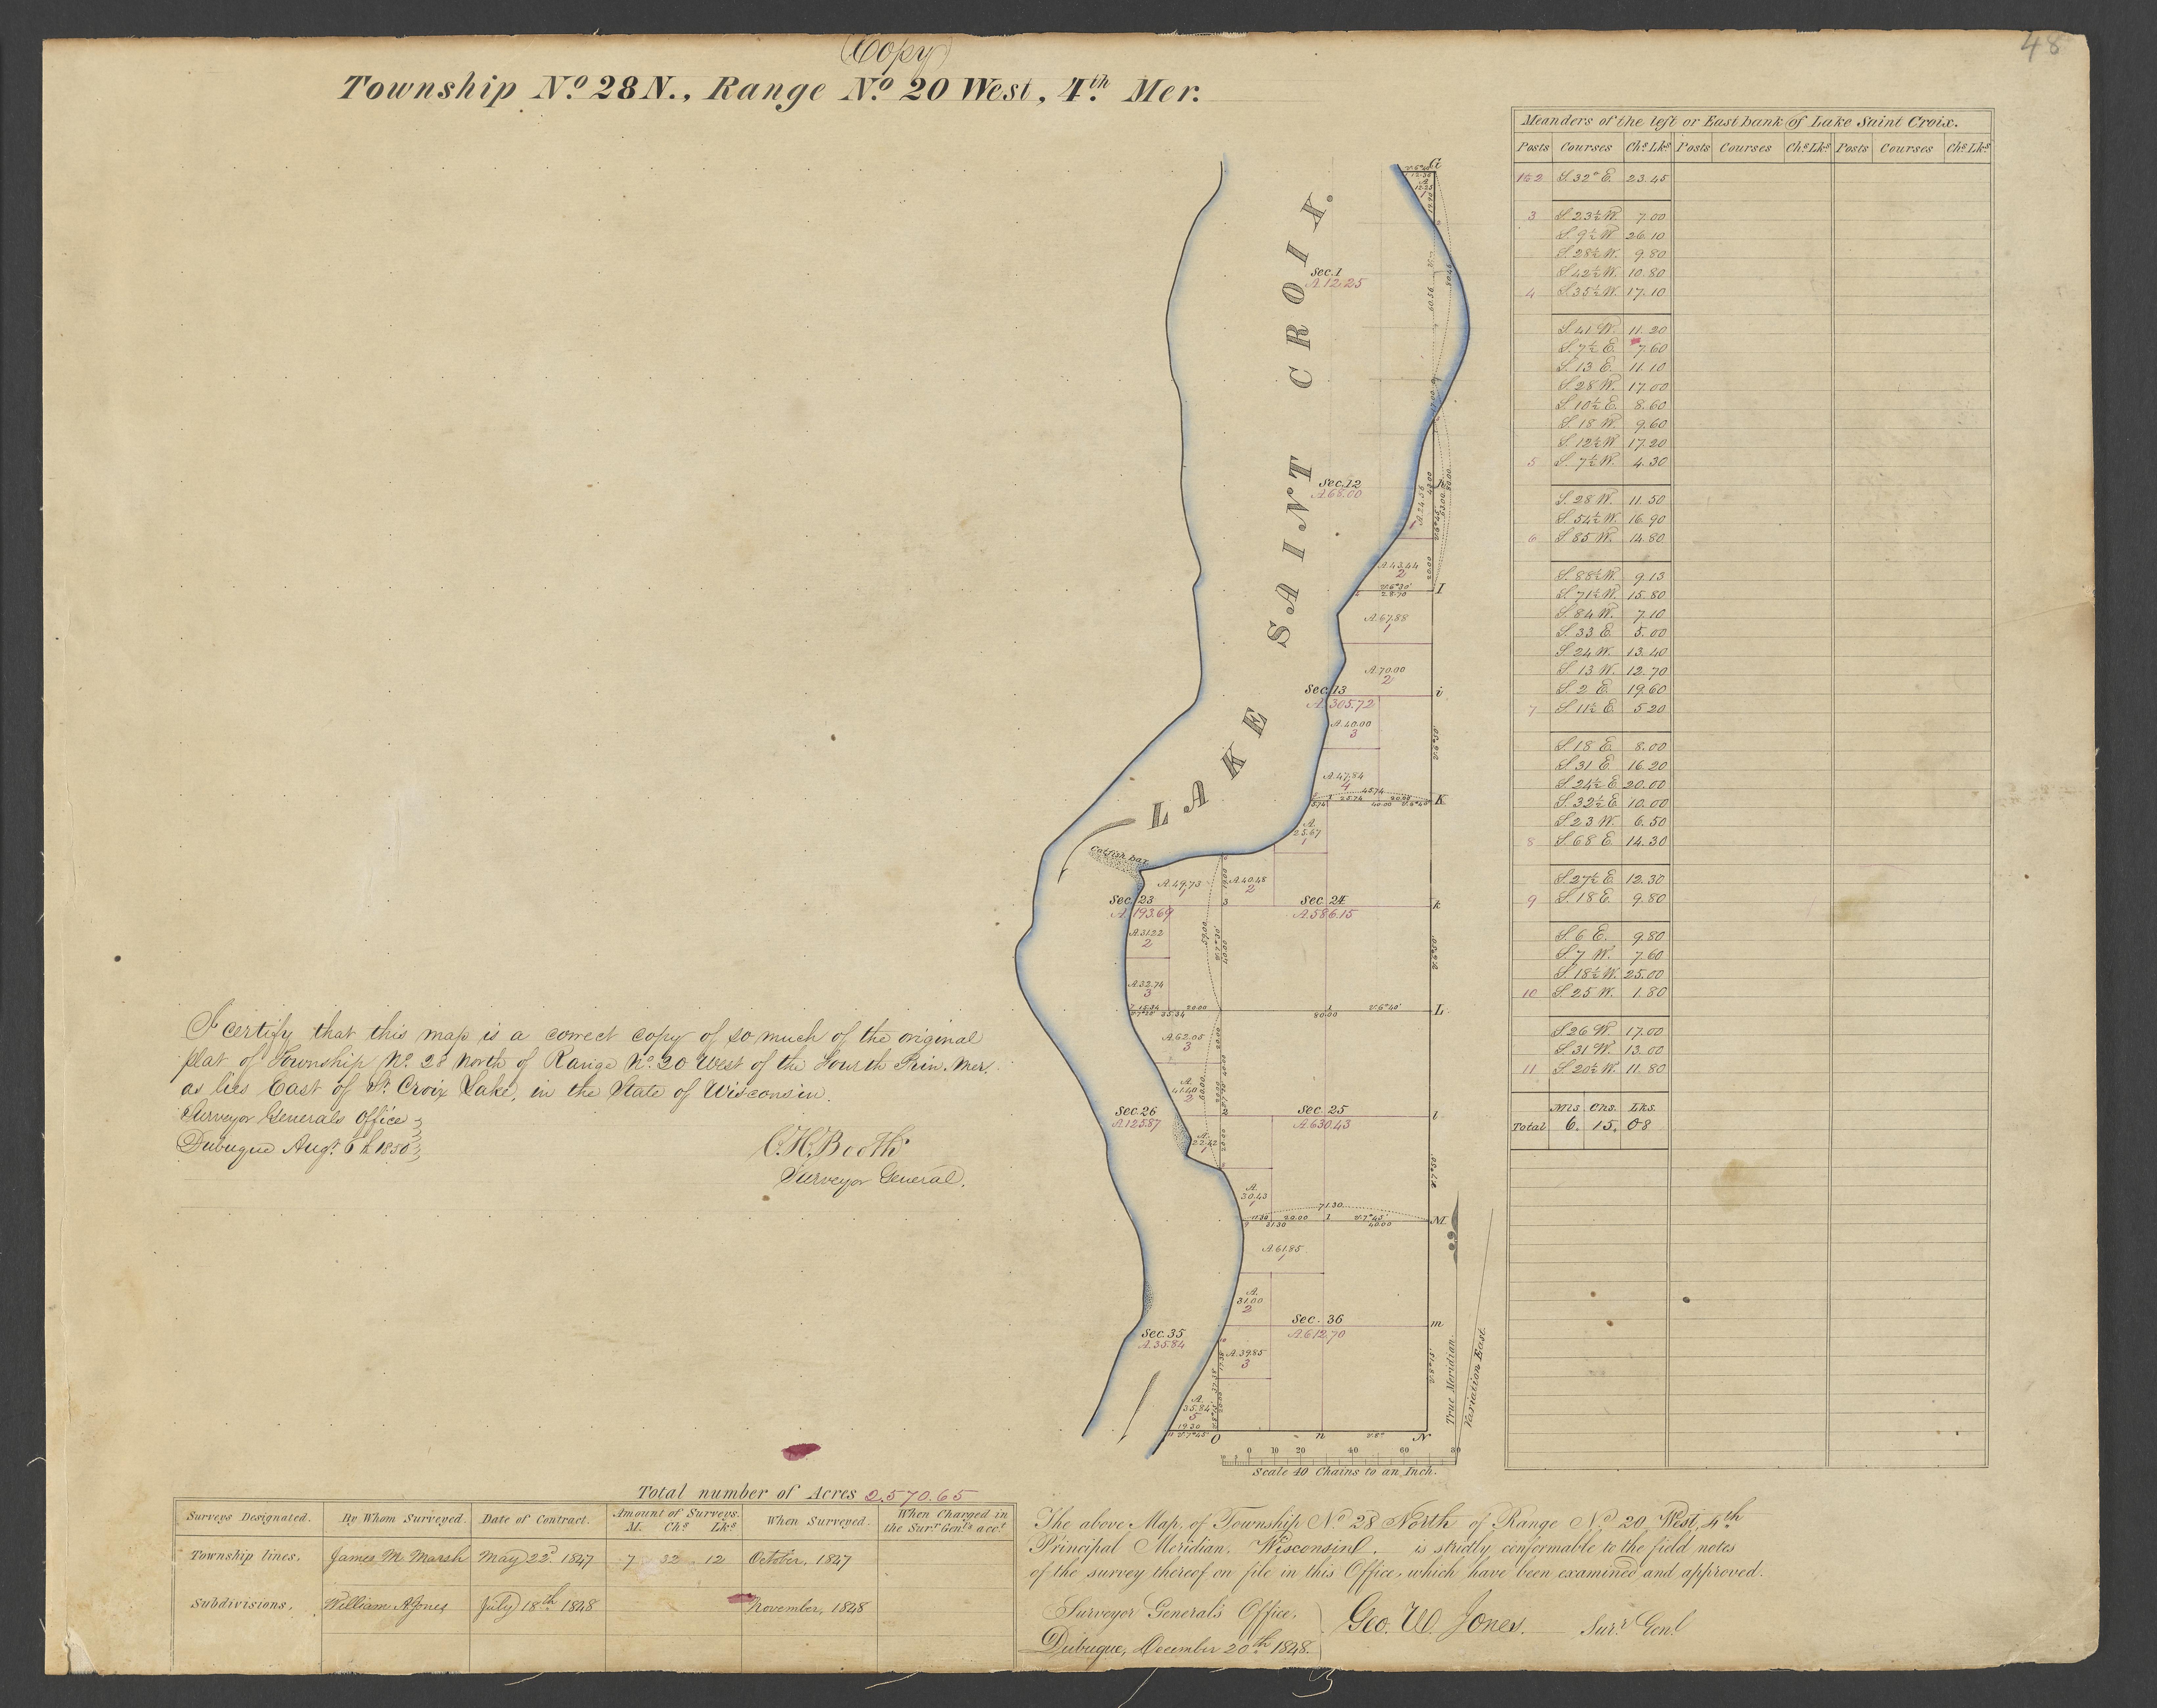 48
(Copy)
Township No. 28 N., Range No. 20 West, 4th. Mer.
Meanders of the left or East bank of Lake Saint Croix.
Posts Courses Chs Lks Posts Courses Chs Lks Posts Courses Chs Lks
1&2 S. 32° E. 23.45
3 S. 23½ W. 7.00
S. 9½ W. 26.10
S. 28½ W. 9.80
S. 42½ W. 10.80
4 S. 35½ W. 17.10
S. 41 W. 11.20
S. 7½ E. 7.60
S. 13 E. 11.10
S. 28 W. 17.00
S. 10½ E. 8.60
S. 18 W. 9.60
S. 12½ W 17.20
5 S. 7½ W. 4.30
S. 28 W. 11.50
S. 54½ W. 16.90
6 S. 85 W. 14.80
S. 88½ W. 9.13
S. 71½ W. 15.80
S. 84 W. 7.10
S. 33 E. 5.00
S. 24 W. 13.40
S. 13 W. 12.70
S. 2 E. 19.60
7 S. 11½ E. 5.20
S. 18 E. 8.00
S. 31 E. 16.20
S. 24½ E 20.00
S. 32½ E 10.00
S. 23 W. 6.50
8 S. 68 E. 14.30
S. 27½ E 12.30
9 S. 18 E. 9.80
S. 6 E. 9.80
S. 7 W. 7.60
S. 18½ W. 25.00
10 S. 25 W. 1.80
S. 26 W. 17.00
S. 31 W. 13.00
11 S. 20½ W. 11.80
Mls. Chs. Lks.
Total 6. 15. 08
G
LAKE SAINT CROIX.
Sec. 1
A. 12.25
60.56
80.46
Sec. 12
A. 68.00
A. 24.56
1
A. 43.44
2
V. 6° 30'
28.70
I
A. 67.88
1
A. 70.00
2
Sec. 13
A. 305.72
i
A. 40.00
3
A. 47.84
4
45.74
5.74 25.74 40.00 20.00 V. 6° 40'
K
A.
25.67
1
Catfish bar.
A. 49.73
1
A. 40.48
2
Sec. 23
A. 193.69
Sec. 24
A. 586.15
k
A. 31.22
2
59.00
40.00
A. 32.74
3
15.34 20.00
35.34
80.00
V. 6° 40'
L
A. 62.05
3
A.
41.40
2
60.00
Sec. 26
A. 125.87
Sec. 25
A. 630.43
l
A.
22.42
1
A.
30.43
1
71.30
11.30 20.00 1 V. 7° 45'
31.30 40.00
M
A. 61.85
1
A.
31.00
2
Sec. 35
A. 35.84
Sec. 36
A. 612.70
m
A. 39.85
3
A.
35.84
5
19.30
V. 7° 45'
O n V. 8° N
True Meridian.
Variation East.
0 10 20 40 60 80
Scale 40 Chains to an Inch.
I certify that this map is a correct copy of so much of the original
plat of Township No. 28 North of Range No. 20 West of the Fourth Prin. Mer.
as lies East of St. Croix Lake, in the State of Wisconsin.
Surveyor Generals Office
Dubuque Augt. 6th 1850
C. H. Booth
Surveyor General.
Total number of Acres 2,570.65
Surveys Designated. By Whom Surveyed. Date of Contract. Amount of Surveys. M. Chs Lks When Surveyed. When Charged in the Surr. Genls acct.
Township lines, James M. Marsh May 22d. 1847 7 32 12 October, 1847
Subdivisions, William A Jones July 18th 1848 November, 1848
The above Map, of Township No. 28 North of Range No. 20 West, 4th
Principal Meridian, Wisconsin, is strictly conformable to the field notes
of the survey thereof on file in this Office, which have been examined and approved.
Surveyor General's Office,
Dubuque, December 20th 1848.
Geo. W. Jones. Surr. Genl